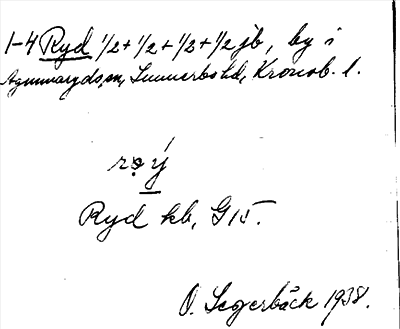 1-4 Ryd 1/2+1/2+1/2+1/2 jb, by i
Agunnaryds sn, Sunnerbo hd, Kronob. l.
rọý̱
Ryd kb, G15.
O. Segerbäck 1938.